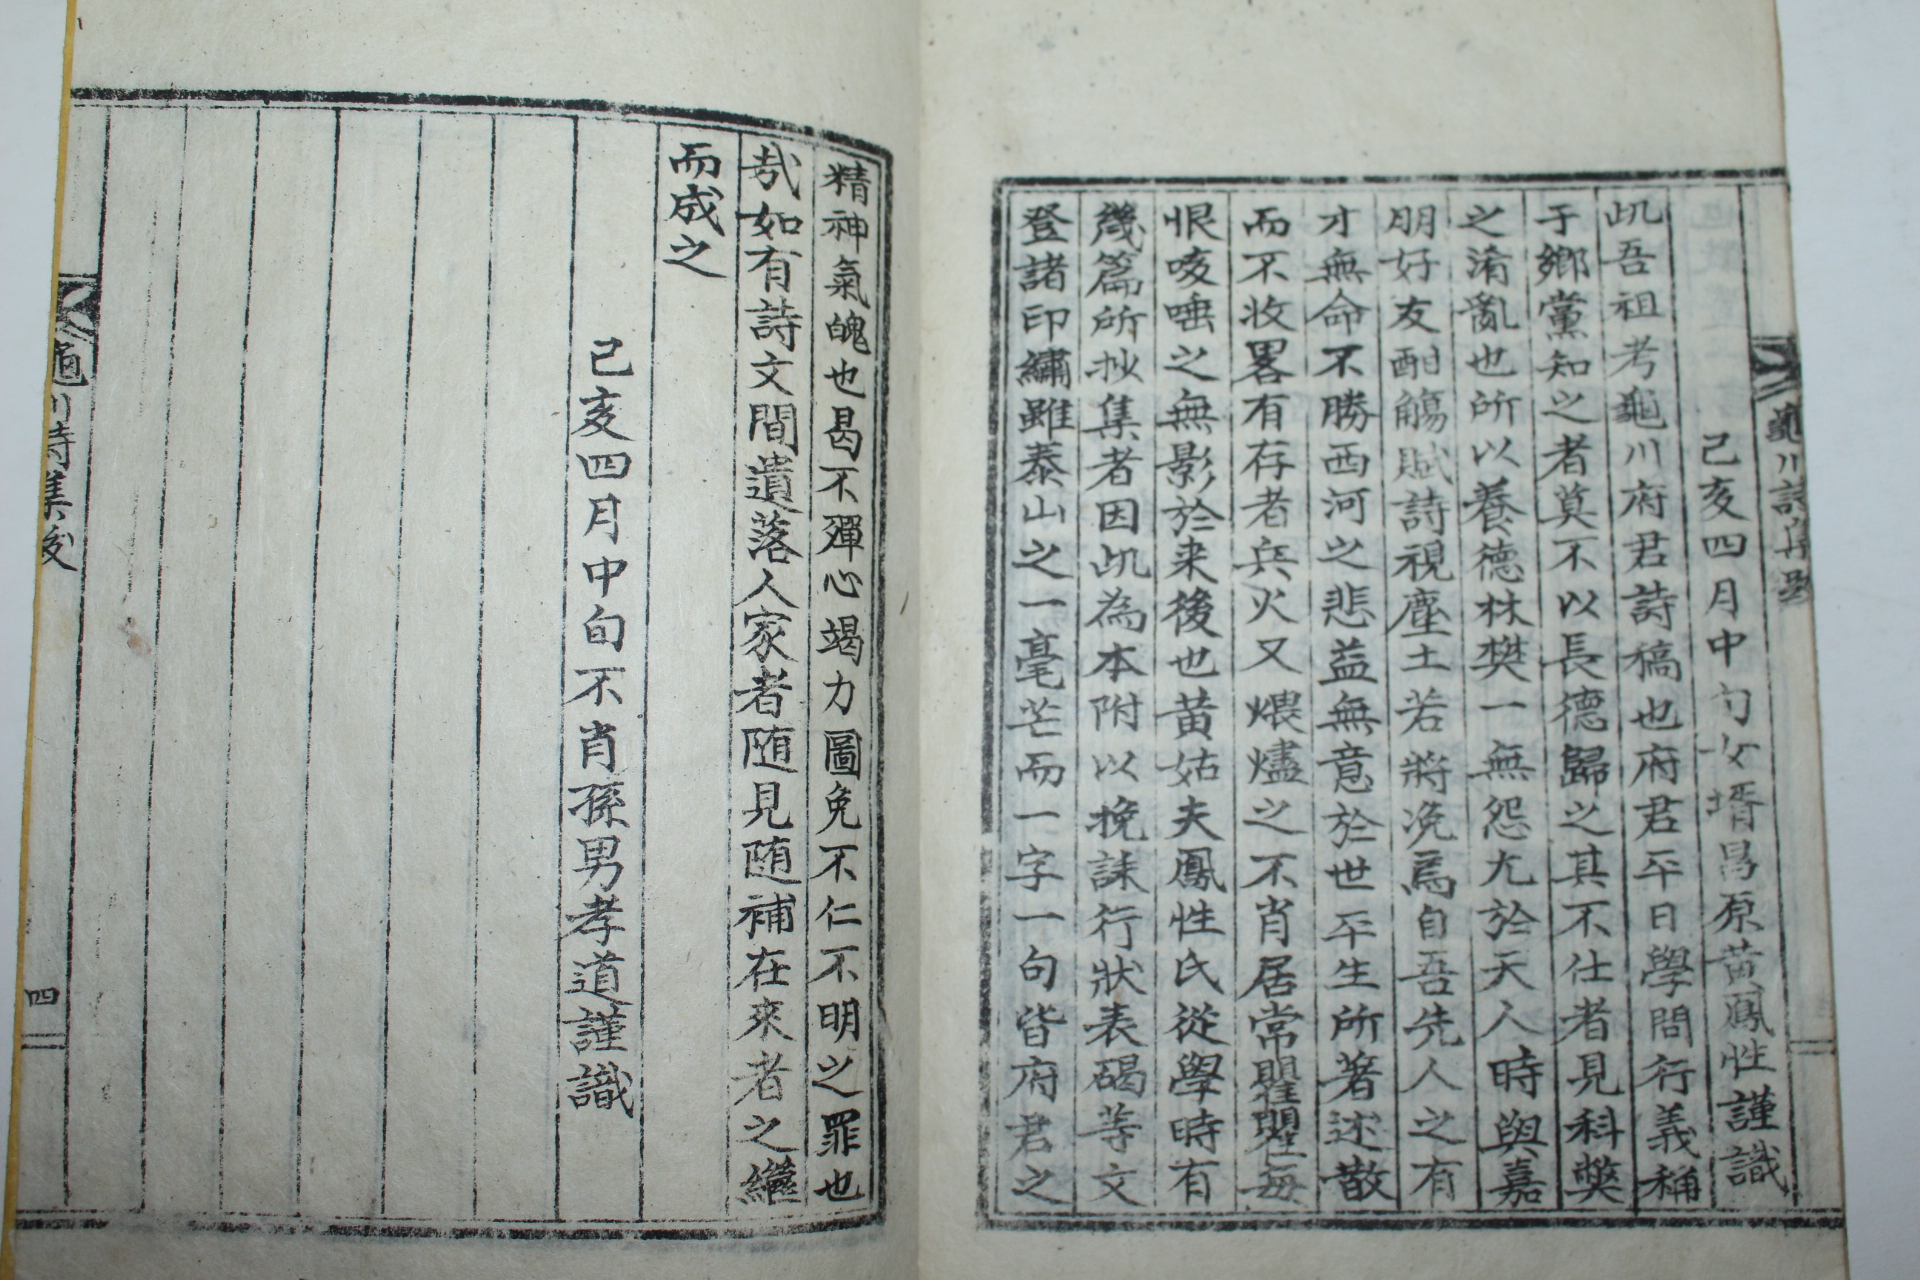 龜川詩集跋
己亥四月中旬女壻昌原黃鳳性謹識
此吾祖考龜川府君詩稿也府君平日學問行義稱
于鄕黨知之者莫不以長德歸之其不仕者見科獘
之淆亂也所以養德林樊一無怨尤於天人時與嘉
朋好友酣觴賦詩視塵土若將浼焉自吾先人之有
才無命不勝西河之悲益無意於世平生所著述散
而不收畧有存者兵火又煨燼之不肖居常瞿瞿每
恨咳唾之無影於来後也黄姑夫鳳性氏從學時有
幾篇所抄集者因此為本附以挽誄行狀表碣等文
登諸印繡雖泰山之一毫芒而一字一句皆府君之
精神氣魄也曷不殫心竭力圖免不仁不明之罪也
哉如有詩文間遺落人家者随見随補在來者之繼
而成之
己亥四月中旬不肖孫男孝道謹識
龜川詩集後
四